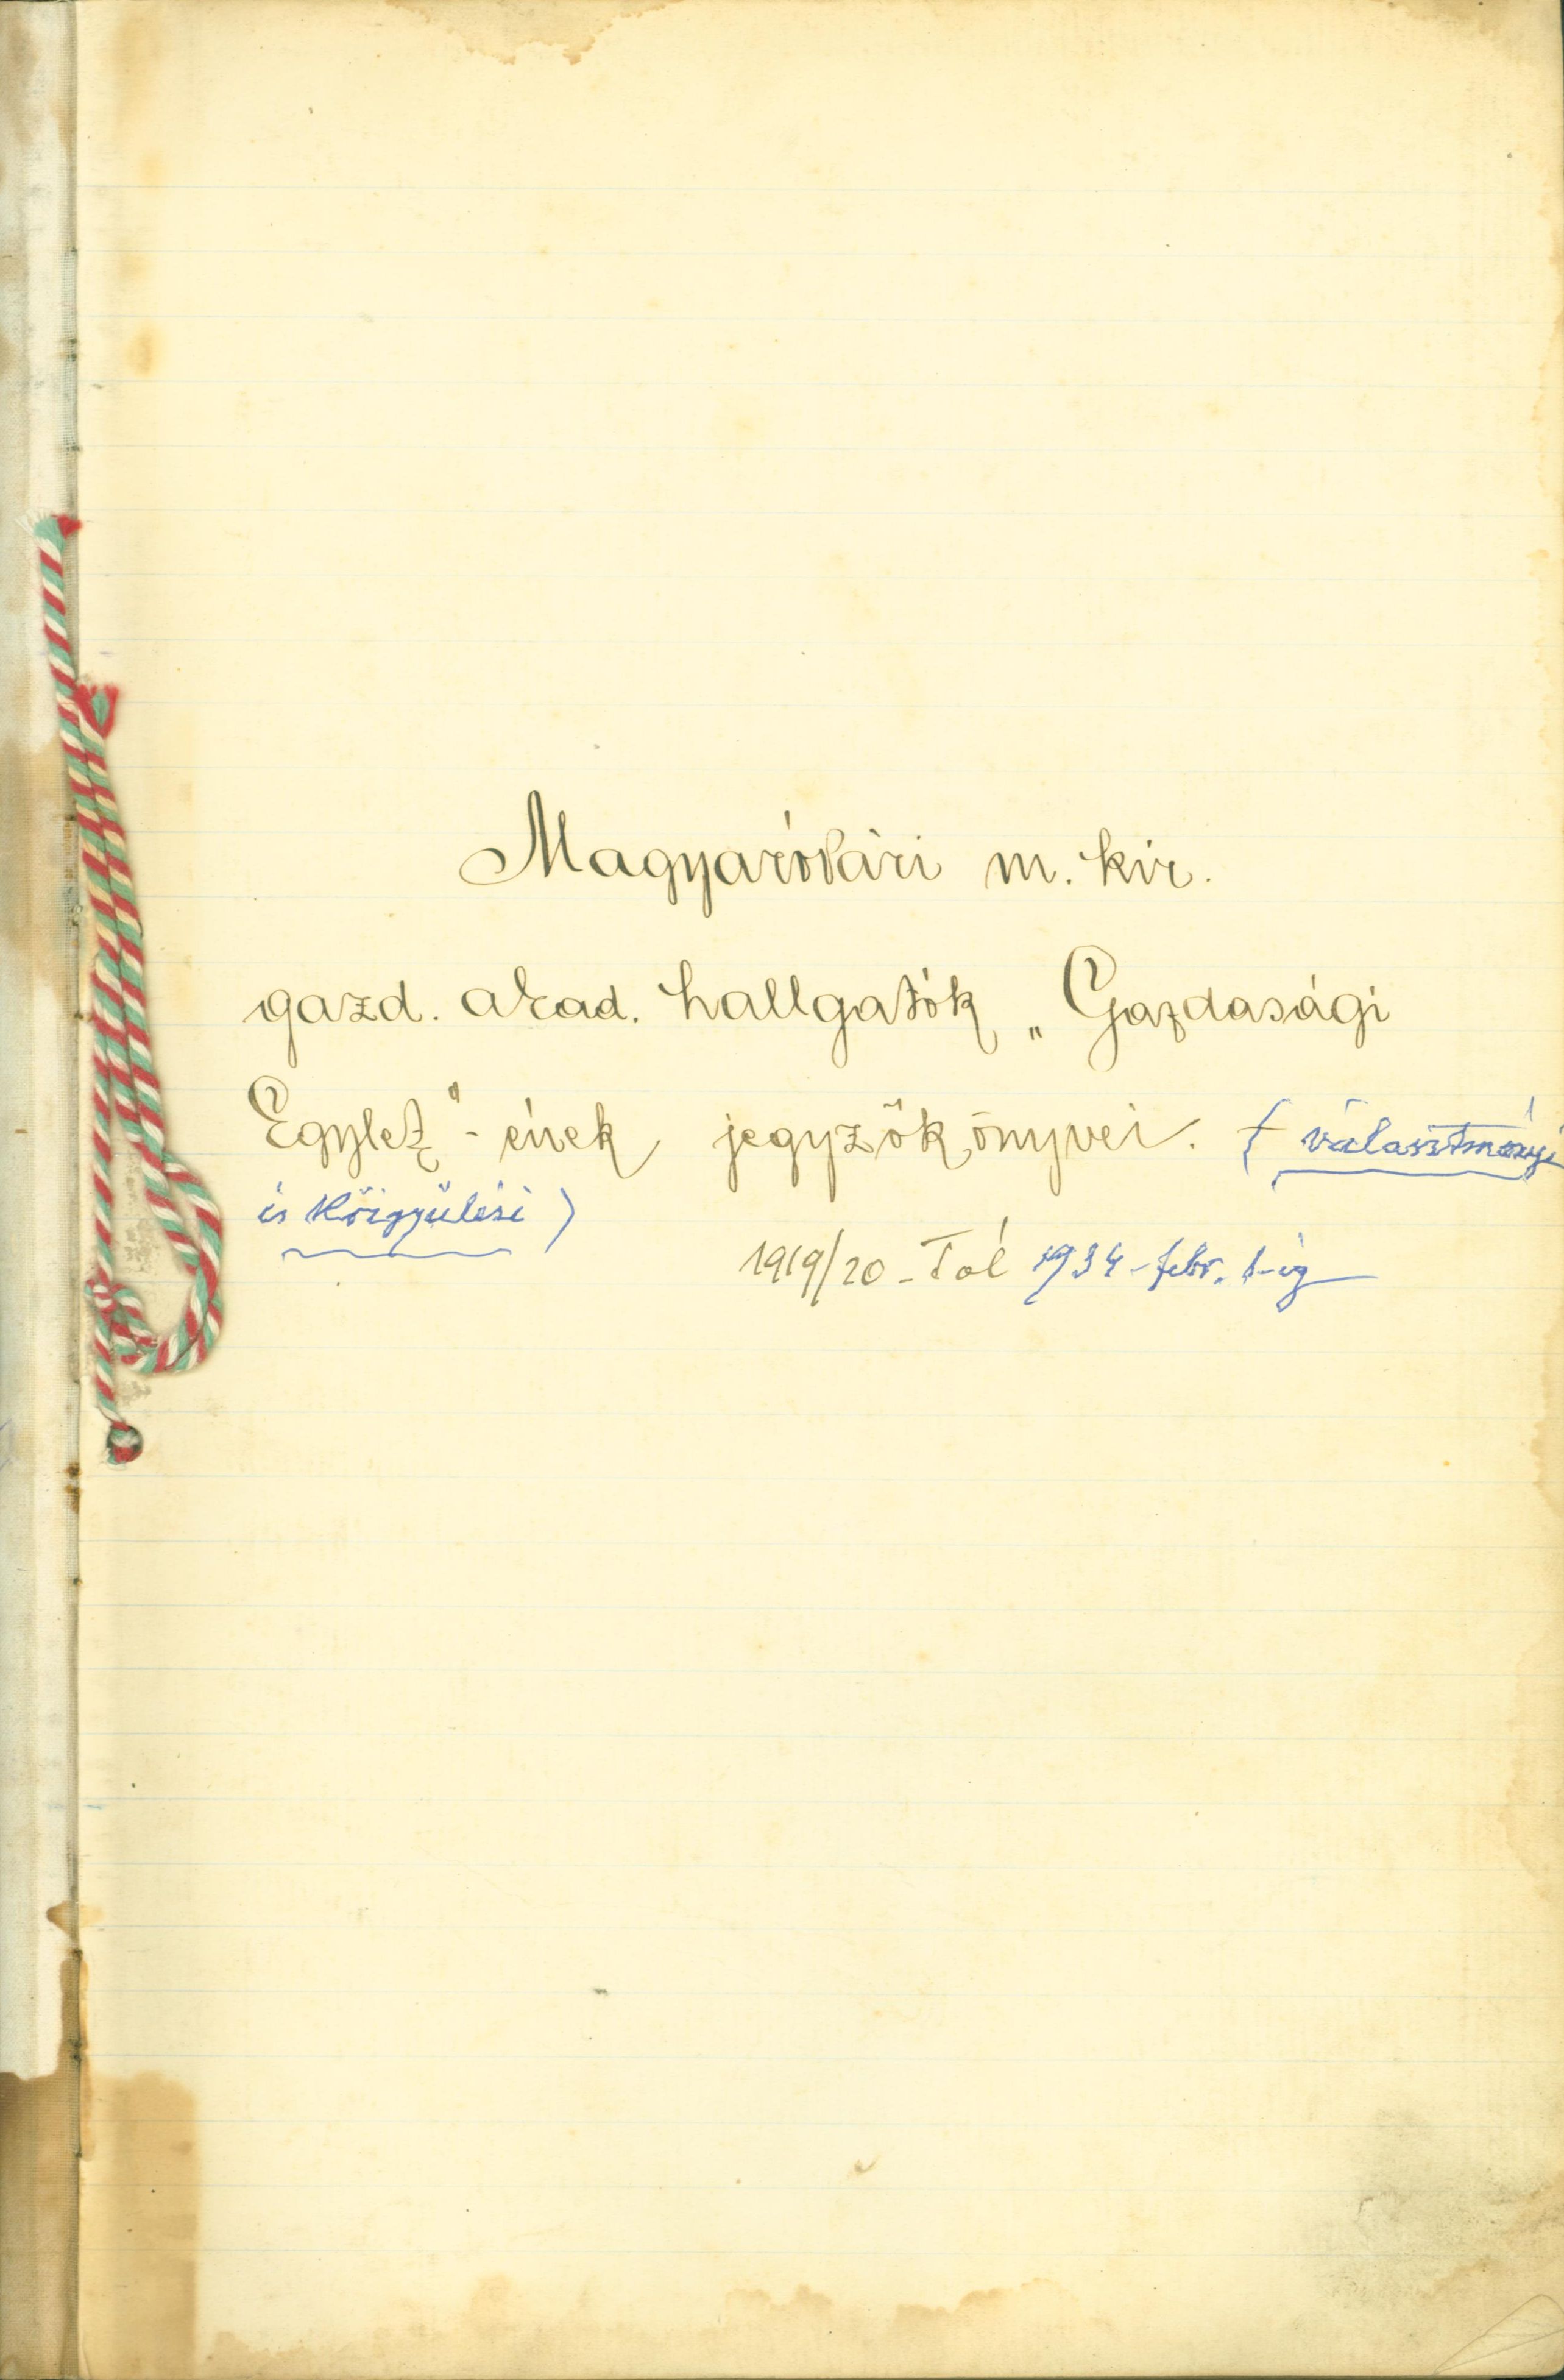 Magyaróvári m. kir.
gazd. akad. hallgatók „Gazdasági
Egylet"-ének jegyzőkönyvei. (választmányi
és közgyűlési)
1919/20-tól 1934-febr. 1-ig